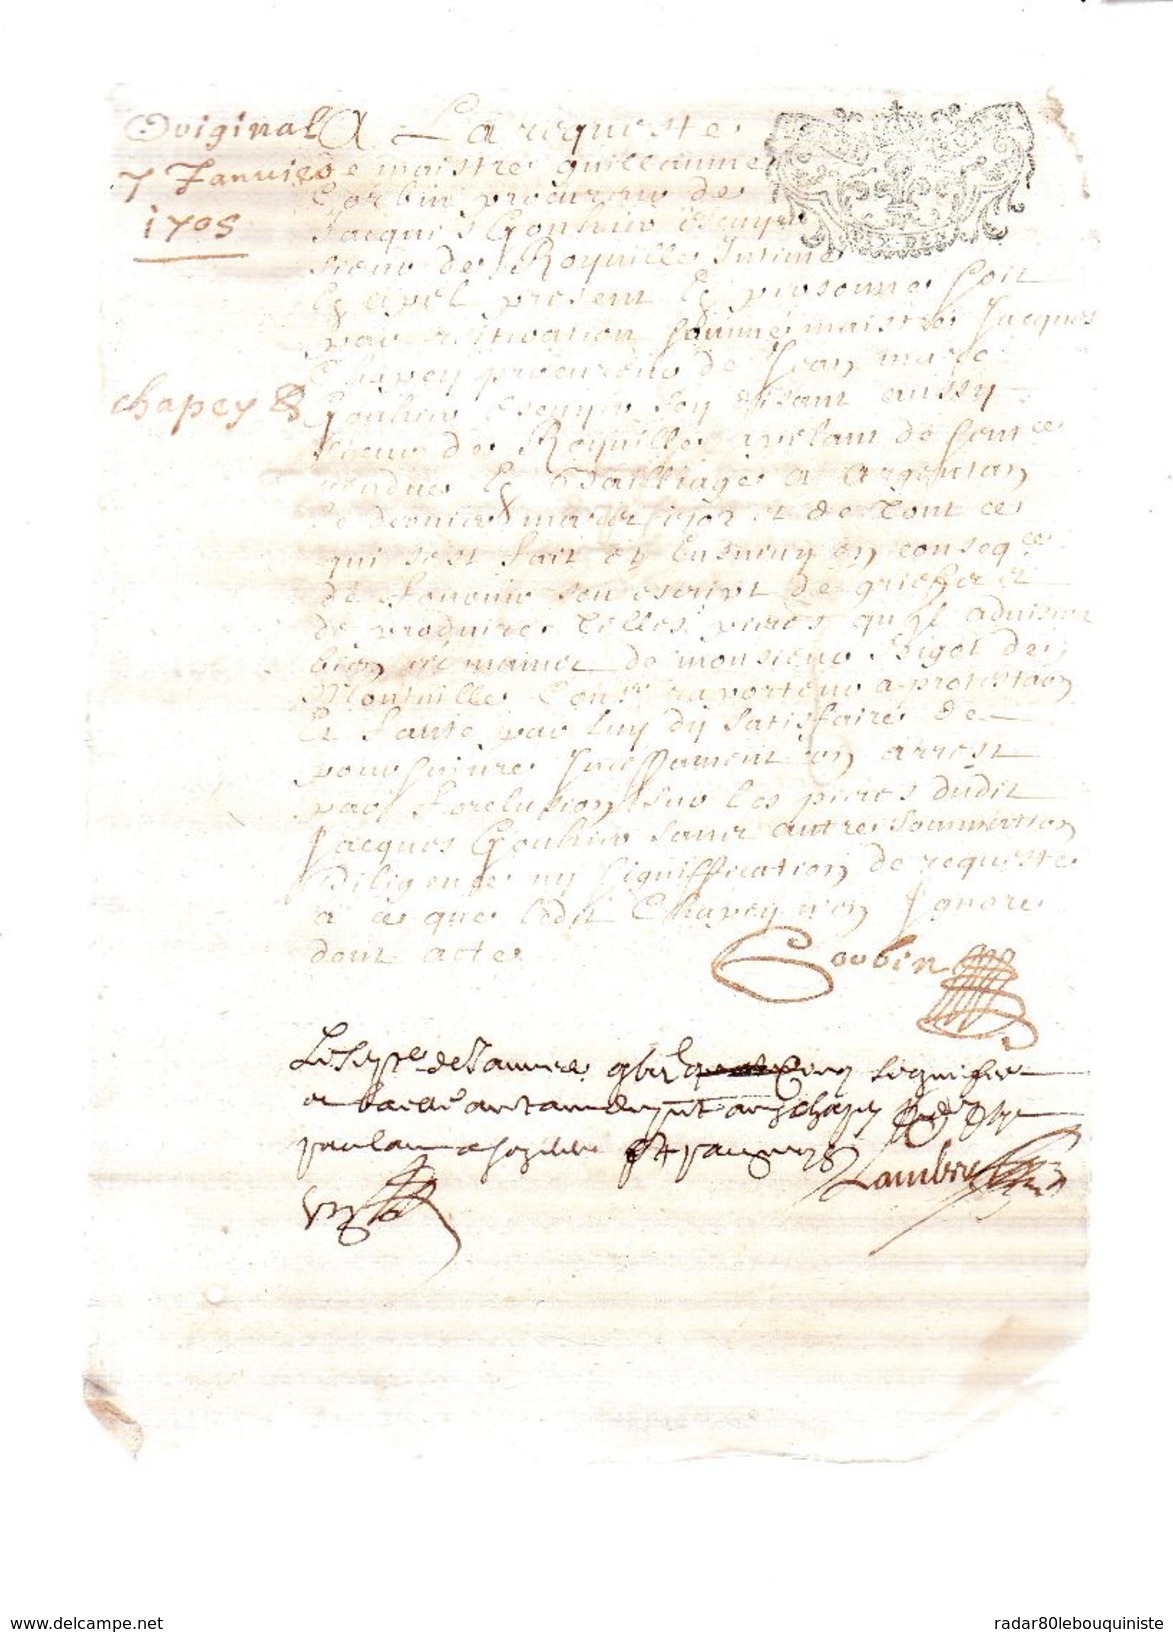 Original
7 Januier
1705
chapey
A La requeste
de maistre guillaume
Corbin procureur de
Jacques Gouhier Escuyer
sieur de Royuille Intimé
En apel present En personne soit
par reiteration sommé maistre Jacques
Chapey procureur de Jean marc
Gouhier Escuyer soy disant aussy
sieur de Royuille apelant de sentce
rendue En Bailliage a Argentan
le dernier mars 1702 et de tout ce
qui s'est fait et Ensuiuy en conseqce
de fournir son escript de griefs et
de produire telles pieces qu'il aduisera
bien es mains de monsieur Bigot de
Montuille Conser raporteur a protestaon
Et faute par luy dy satisfaire de
poursuiure Incessament un arrest
par forclusion sur les pieces dudit
Jacques Gouhier sans autre sommation
Diligence ny signiffication de requeste
a ce que ledit Chapey n'en Ignore
dont acte
Corbin
Le sepe de Januier cinq signifie
et baille autant du pnt audt chapey
parlant a
Lambert